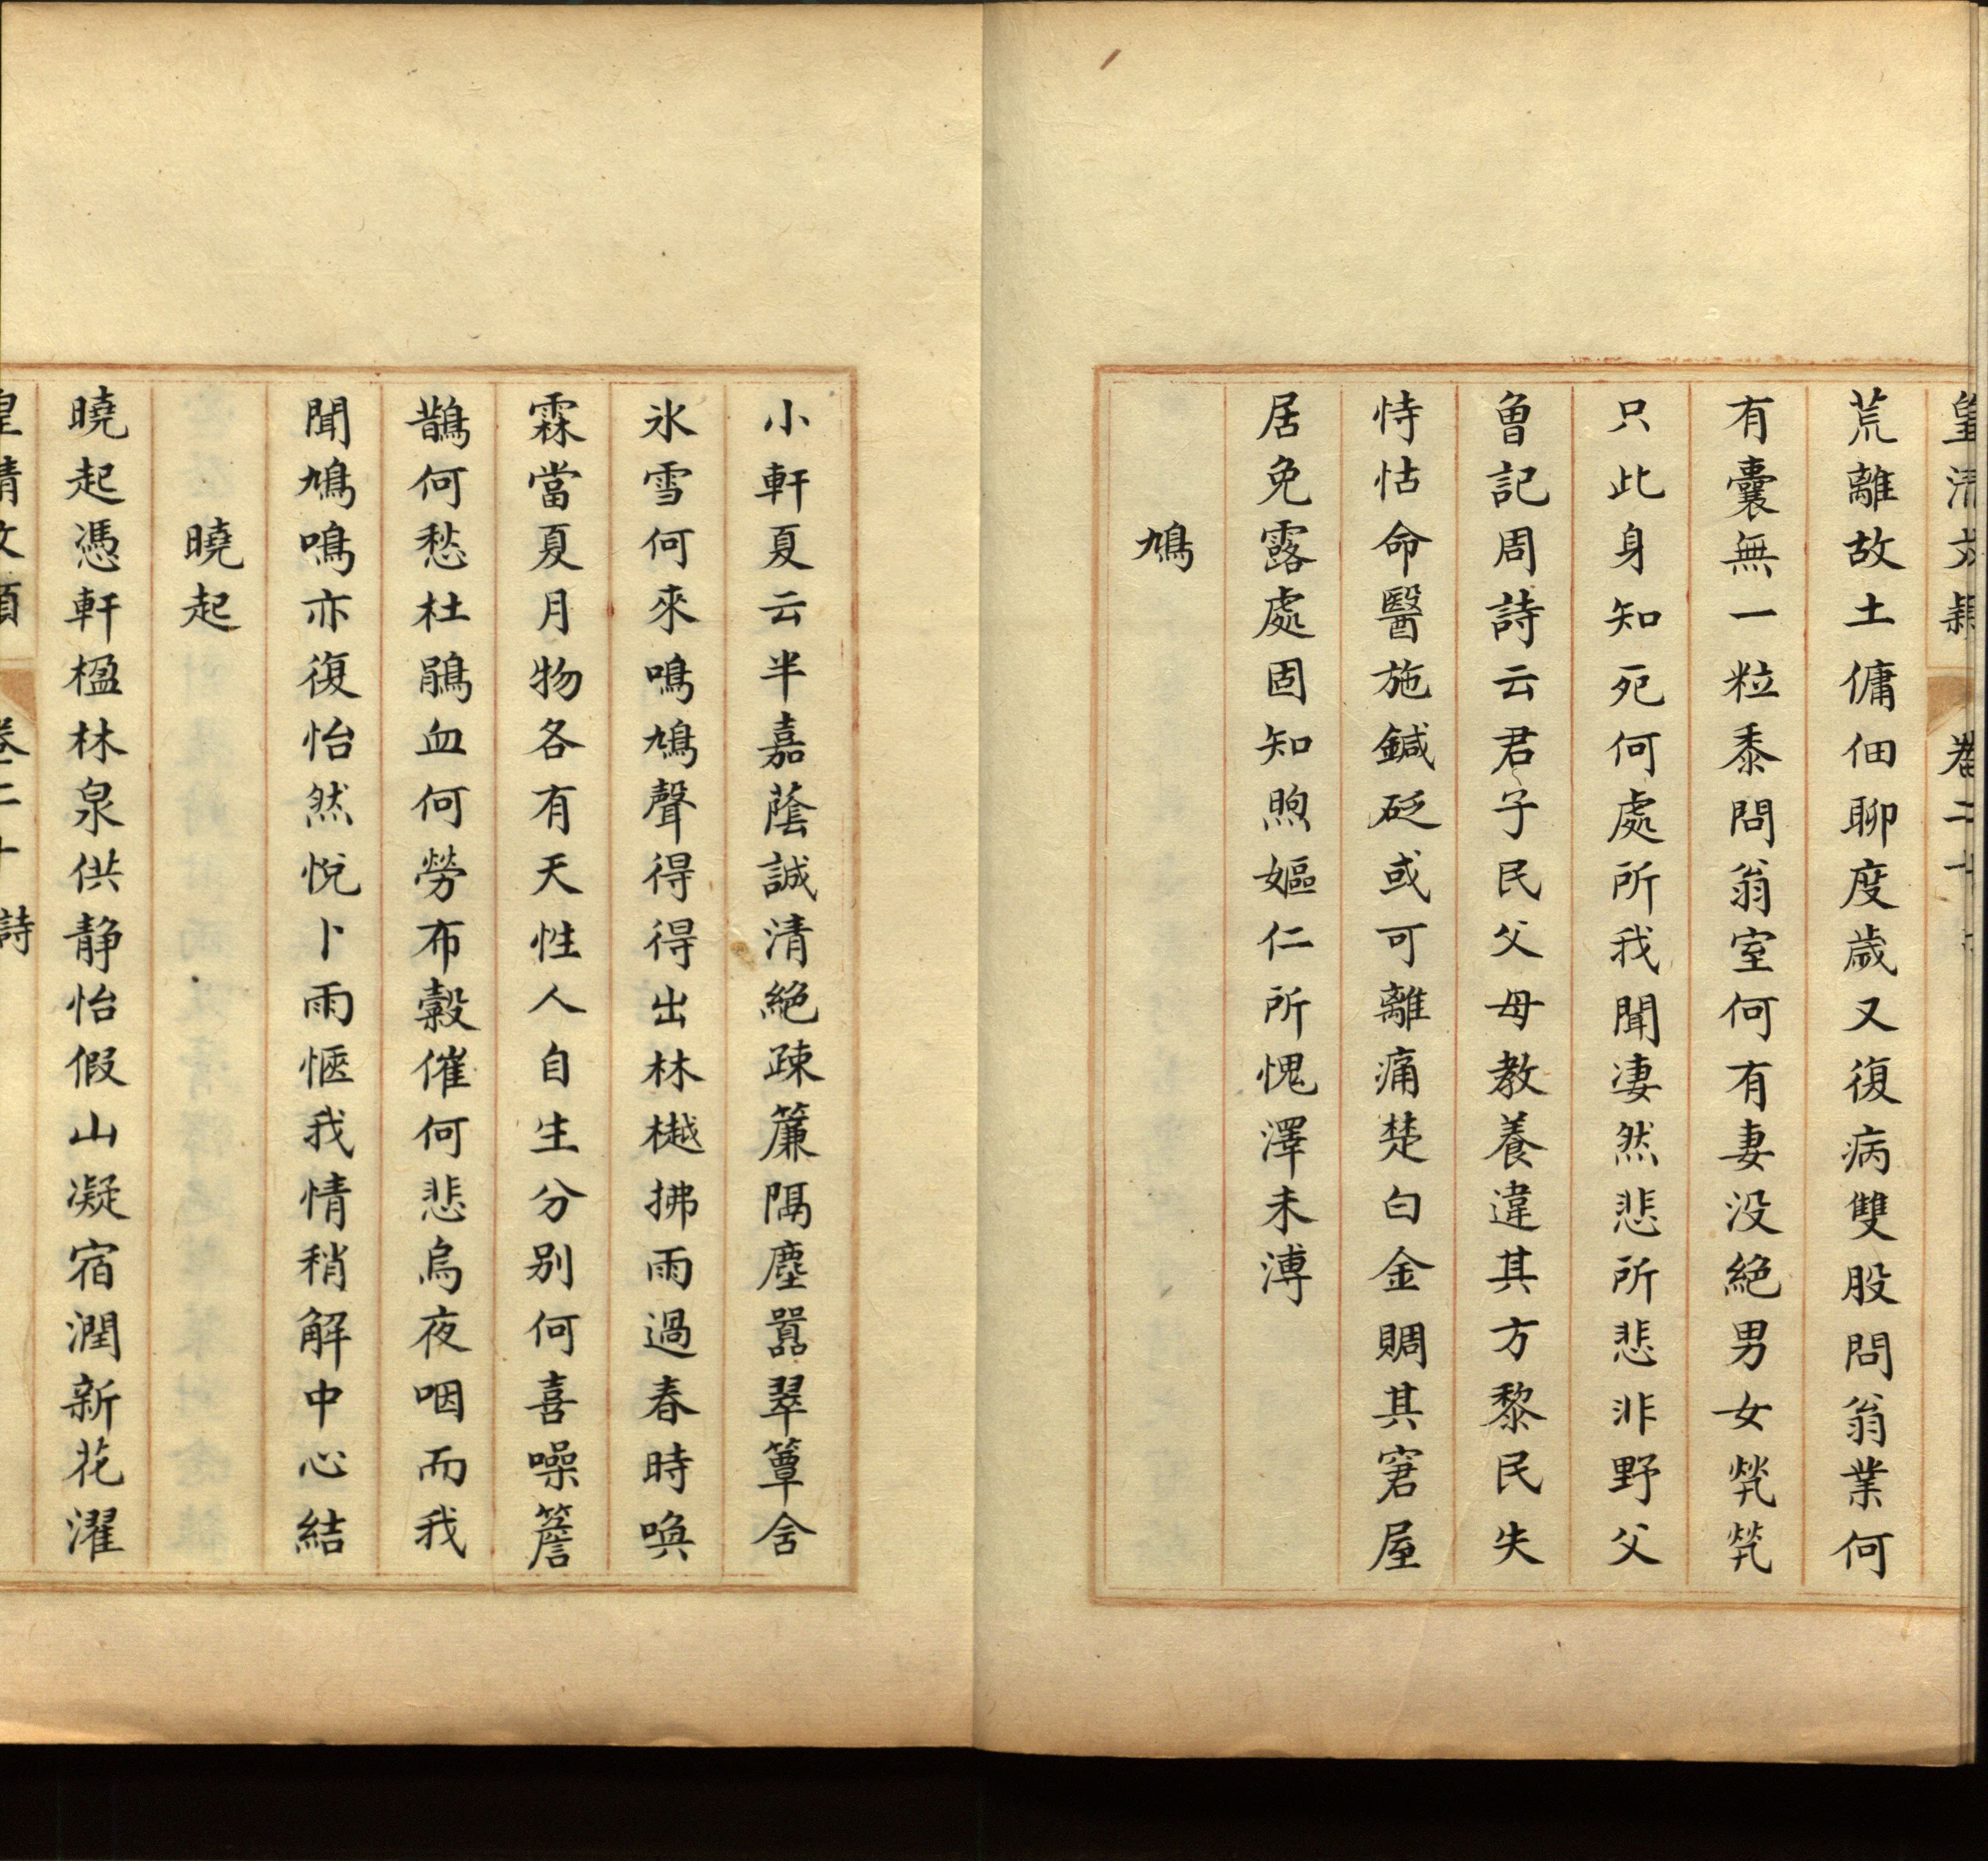 皇清文穎 卷二十
荒離故土傭佃聊度歲又復病雙股問翁業何
有囊無一粒黍問翁室何有妻没絕男女煢煢
只此身知死何處所我聞凄然悲所悲非野父
曾記周詩云君子民父母教養違其方黎民失
恃怙命醫施鍼砭或可離痛楚白金賙其窘屋
居免露處固知煦嫗仁所愧澤未溥
鳩
小軒夏云半嘉蔭誠清絕疎簾隔塵囂翠簟舍
氷雪何來鳴鳩聲得得出林樾拂雨過春時喚
霖當夏月物各有天性人自生分别何喜噪簷
鵲何愁杜鵑血何勞布穀催何悲烏夜咽而我
聞鳩鳴亦復怡然悅卜雨愜我情稍解中心結
曉起
曉起憑軒楹林泉供静怡假山凝宿潤新花濯
皇清文穎 卷二十 詩